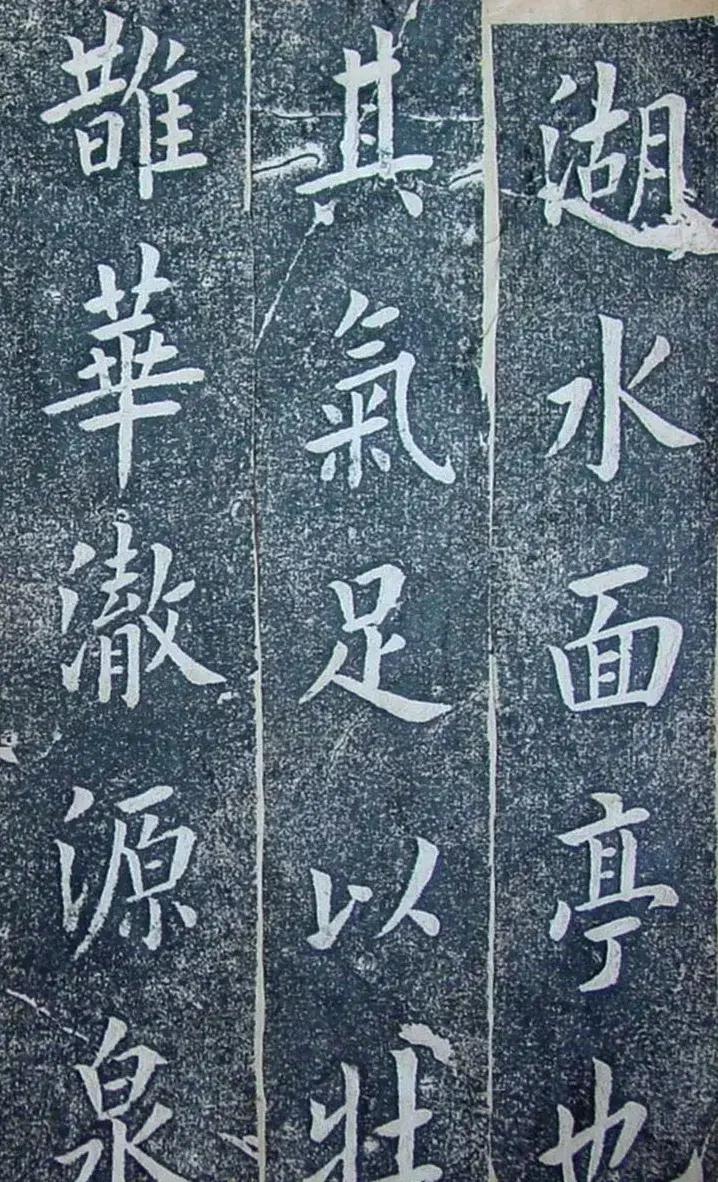 湖水面亭也
其氣足以壯
䧿華澈源泉